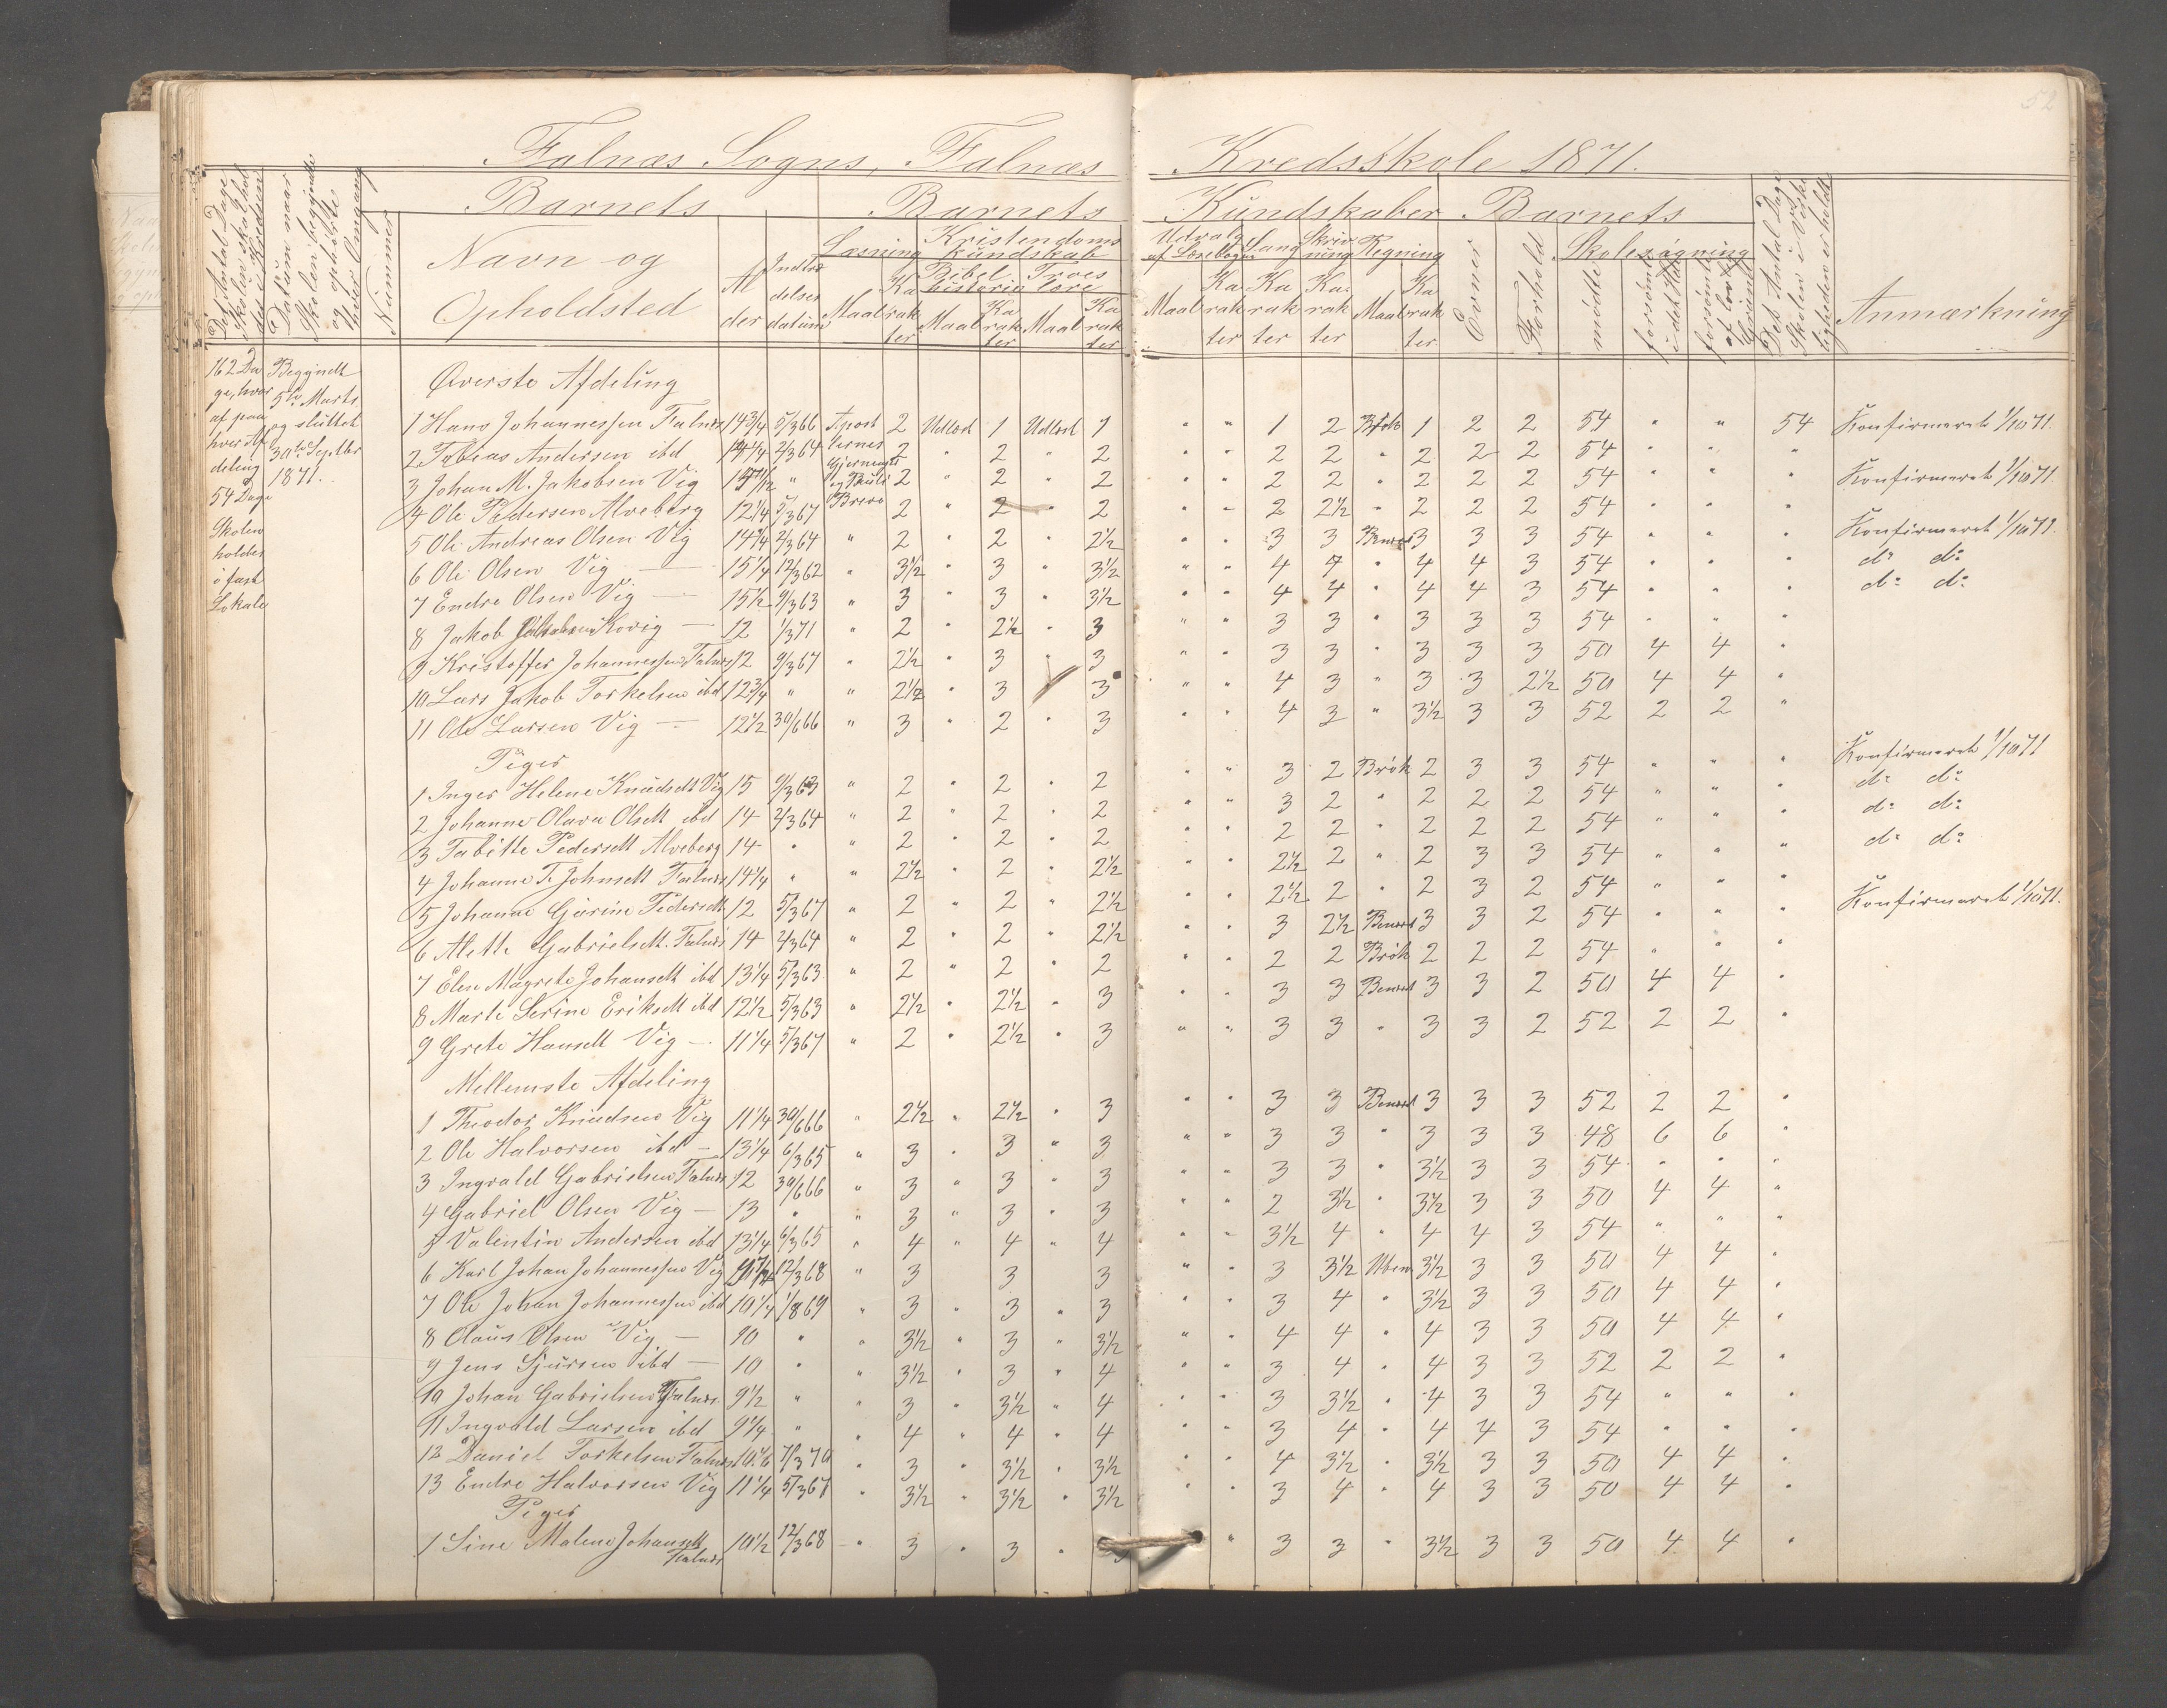 52
Falnæs Sogns, Falnæs Kredsskole 1871.
Det Antal Dage Skolen skal holdes i Kredsen
Datum naar Skolen begyndte og ophörte hver Omgang
Nummer
Barnets
Navn og Opholdsted
Alder
Indtrædelsesdatum
Barnets Kundskaber
Læsning
Maal Karakter
Kristendoms Kundskab
Bibelhistorie
Maal Karakter
Troeslære
Maal Karakter
Udvalg af Læsebogen
Maal Karakter
Sang
Karakter
Skrivning
Karakter
Regning
Maal Karakter
Barnets
Evner
Forhold
Skolesøgning
mødte
forsömte i det Hele
forsömte af lovlig Grund
Det Antal Dage Skolen i Virkeligheden er holdt
Anmærkning
162 Dage, hvoraf paa hver Afdeling 54 Dage
Skolen holdes i fast Lokale
Begyndt 5te Marts og sluttet 30te Septbr 1871.
Øverste Afdeling
1 Hans Johannessen Falnæs 14 3/4 5/3 66 Apostlernes Gjerninger og Pauli Breve 2 Udlært 1 Udlært 1 " " 1 2 Brök 1 2 2 54 " " 54 Konfirmeret 1/10 71.
2 Tobias Andersen ibd 14 1/4 2/3 64 2 " 2 " 2 " " 2 2 " 2 2 2 54 " " "
3 Johan M. Jakobsen Vig " 2 " 2 " 2 " " 2 2 " 2 2 2 54 " " " Konfirmeret 1/10 71.
4 Ole Pedersen Alveberg 12 1/4 5/3 67 2 " 2 " 2 " " 2 2 1/2 " 2 2 2 54 " " "
5 Ole Andreas Olsen Vig 14 1/4 2/3 64 " 2 " 2 " 2 1/2 " " 3 3 Benævt 3 3 3 54 " " " Konfirmeret 1/10 71.
6 Ole Olsen Vig — 15 1/4 12/3 62 " 3 1/2 " 3 " 3 1/2 " " 4 4 " 4 4 3 54 " " " do do
7 Endre Olsen Vig — 15 1/2 9/3 63 " 3 " 3 " 3 1/2 " " 4 4 " 4 4 3 54 " " " do do
8 Jakob Kovig — 12 1/3 71 " 2 " 2 1/2 " 3 " " 3 3 " 3 3 3 54 " " "
9 Kristoffer Johannessen Falnæs 12 9/3 67 " 2 1/2 " 3 " 3 " " 3 3 " 3 3 3 50 4 4 "
10 Lars Jakob Torkelsen ibd 12 3/4 " " 2 1/2 " 3 " 3 " " 4 3 " 3 3 2 1/2 50 4 4 "
11 Ole Larsen Vig — 12 1/2 30/6 66 " 3 " 2 " 3 " " 4 3 " 3 1/2 3 3 52 2 2 "
Piger
1 Inger Helene Knudsdt Vig 15 9/3 63 " 2 " 2 " 2 " " 3 2 Brök 2 3 3 54 " " " Konfirmeret 1/10 71
2 Johanne Olava Olsdt ibd 14 2/3 64 " 2 " 2 " 2 " " 3 2 " 2 2 2 54 " " " do do
3 Tabitte Pedersdt Alveberg 14 " " 2 " 2 " 2 " " 2 2 " 2 2 2 54 " " " do do
4 Johanne T. Johnsdt Falnæs 14 1/4 " " 2 1/2 " 2 " 2 1/2 " " 2 1/2 2 " 2 3 3 54 " " " do do
5 Johanne Gurine Pedersdt 12 5/3 67 " 2 " 2 " 2 1/2 " " 2 1/2 2 " 2 3 2 54 " " "
6 Alette Gabrielsdt. Falnæs 14 2/3 64 " 2 " 2 " 2 1/2 " " 3 2 1/2 Benævt 3 3 2 54 " " " Konfirmeret 1/10 71.
7 Elen Magrete Johansdt ibd 13 1/4 5/3 63 " 2 " 2 " 2 " " 2 2 Brök 2 2 2 54 " " "
8 Marte Serine Eriksdt ibd 12 1/2 5/3 63 " 2 1/2 " 2 1/2 " 3 " " 3 3 Benævt 3 3 2 50 4 4 "
9 Grete Hansdt Vig — 11 1/4 5/3 67 " 2 " 2 1/2 " 3 " " 3 3 " 3 3 2 52 2 2 "
Mellemste Afdeling
1 Theodor Knudsen Vig 11 1/4 30/6 66 " 2 1/2 " 2 1/2 " 3 " " 3 3 Benævt 3 3 3 52 2 2 "
2 Ole Halvorsen ibd — 13 1/4 6/3 65 " 3 " 3 " 3 " " 3 3 " 3 3 3 48 6 6 "
3 Ingvald Gabrielsen Falnæs 12 30/6 66 " 3 " 3 " 3 " " 3 3 " 3 1/2 3 3 54 " " "
4 Gabriel Olsen Vig — 13 " " 3 " 3 " 3 " " 2 3 1/2 " 3 1/2 3 3 50 4 4 "
5 Valentin Andersen ibd 13 1/4 6/3 65 " 4 " 4 " 4 " " 3 1/2 4 " 4 4 3 54 " " "
6 Karl Johan Johannessen Vig 12/3 68 " 3 3 3 " " 3 3 1/2 Uben. 3 1/2 3 3 50 4 4 "
7 Ole Johan Johannessen ibd 10 1/4 1/8 69 " 3 " 3 " 3 " " 3 4 " 3 1/2 3 3 50 4 4 "
8 Olaus Olsen Vig — 10 " " 3 1/2 " 3 " 3 1/2 " " 4 4 " 4 3 3 50 4 4 "
9 Jens Sjursen ibd — 10 " " 3 1/2 " 3 " 4 " " 3 4 " 4 3 3 52 2 2 "
10 Johan Gabrielsen Falnæs 9 1/2 " " 3 " 3 1/2 " 4 " " 3 3 1/2 " 4 3 3 54 " " "
11 Ingvald Larsen ibd 9 1/4 " " 4 " 4 " 4 " " 3 4 " 4 4 3 54 " " "
12 Daniel Torkelsen Falnæs 7/3 70 " 3 " 3 1/2 " 3 1/2 " " 4 3 1/2 " 3 1/2 3 3 50 4 4 "
13 Endre Halvorsen Vig 11 1/4 5/3 67 " 3 1/2 " 3 1/2 " 3 1/2 " " 3 4 " 4 3 3 50 4 4 "
Piger
1 Sine Malene Johansdt Falnæs 10 1/2 12/3 68 " 3 " 3 " 3 " 3 3 " 3 1/2 3 3 50 4 4 "